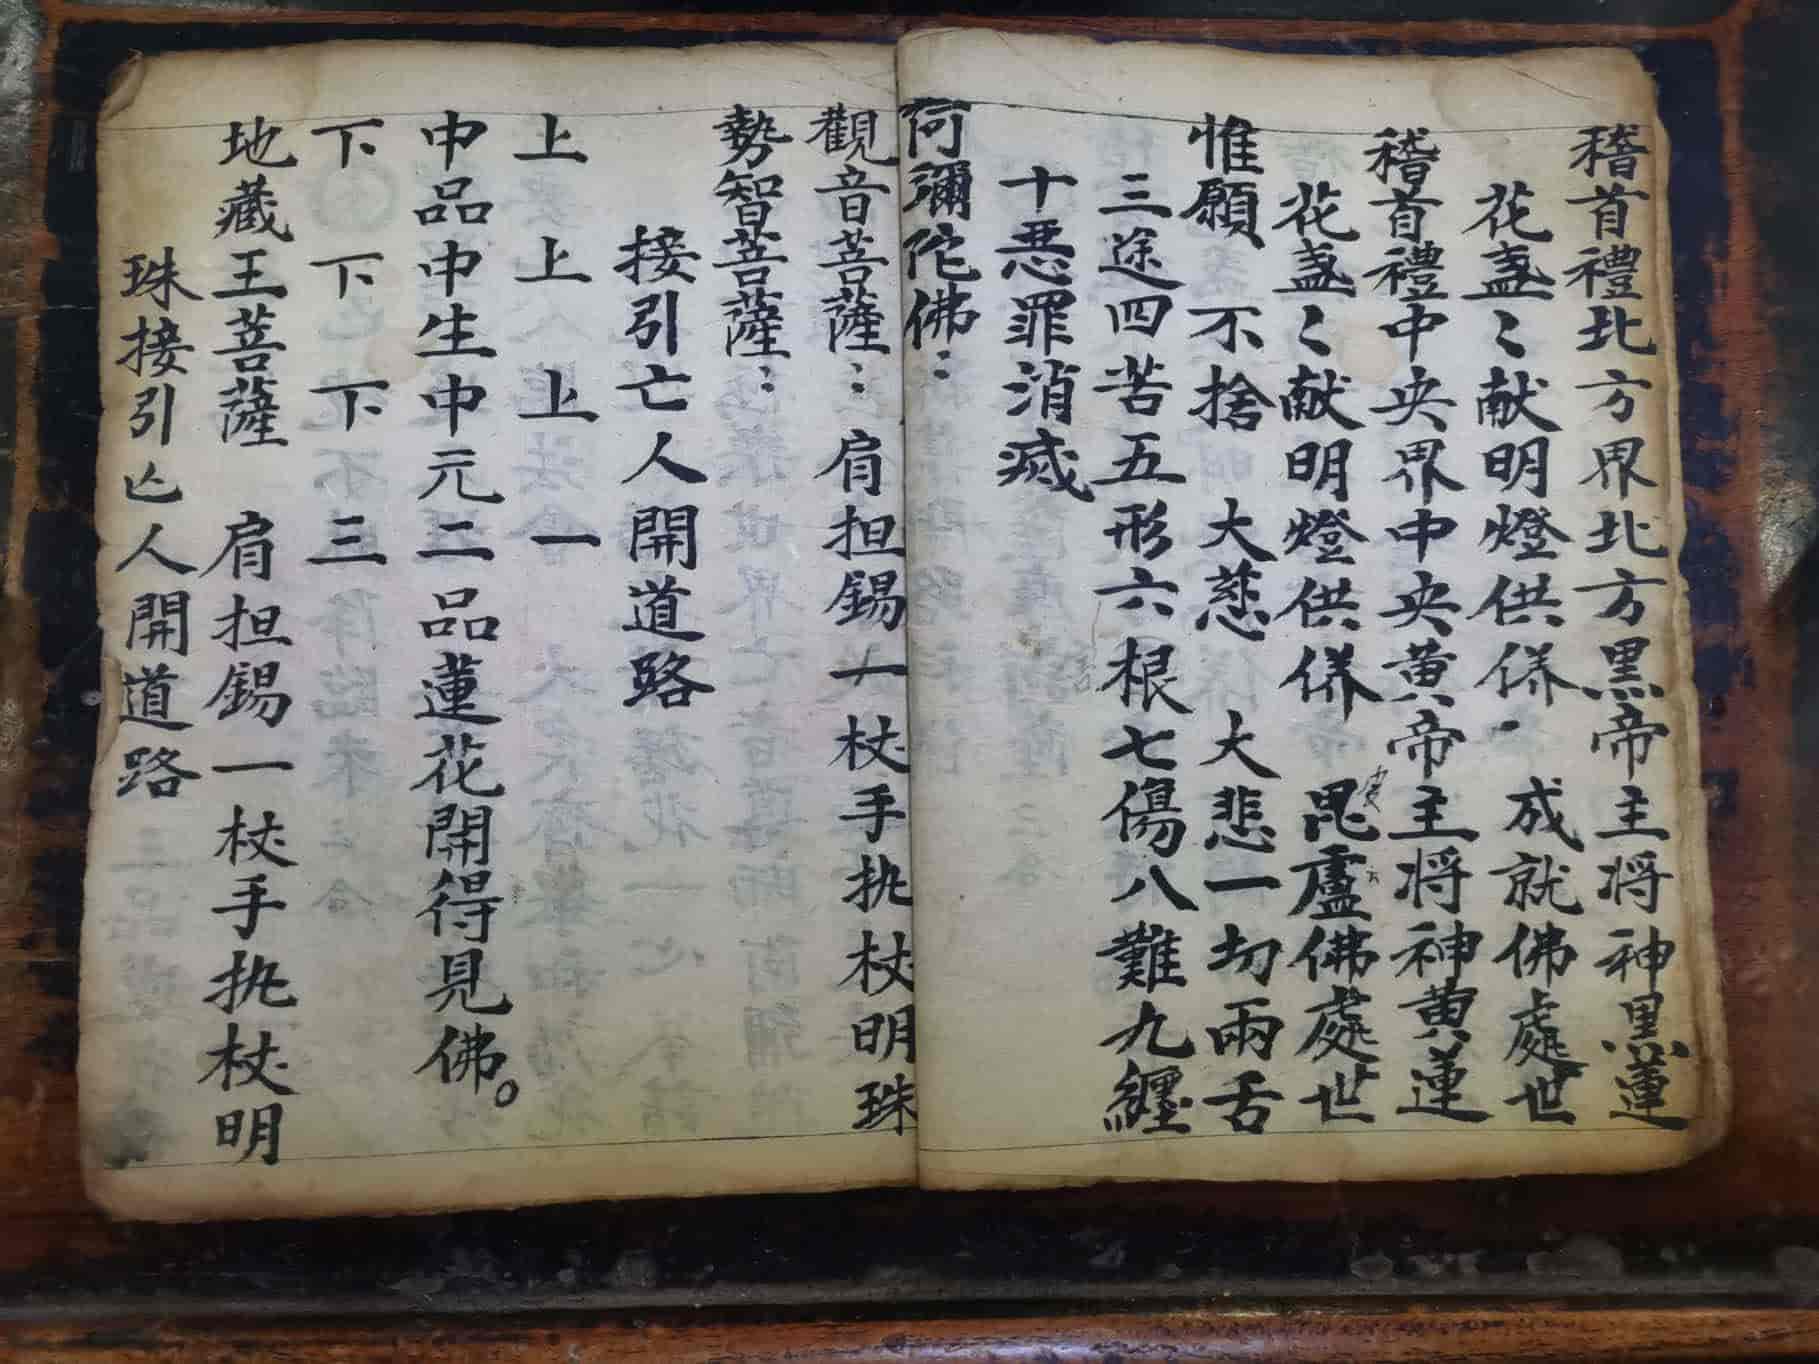 稽首禮北方界北方黑帝主将神黑蓮
花盏〻献明燈供倂 成就佛處世
稽首禮中央界中央黄帝主将神黄蓮
花盏〻献明燈供倂 毘盧佛處世
惟願 不捨 大慈 大悲一切兩舌
三途四苦五形六根七傷八難九纏
十悪罪消滅
何彌陀佛：
觀音菩薩：肩担錫一杖手执杖明珠
勢智菩薩：
接引亡人開道路
上上上一
中品中生中元二品蓮花開得見佛。
下下下三
地藏王菩薩 肩担錫一杖手执杖明
珠接引亡人開道路